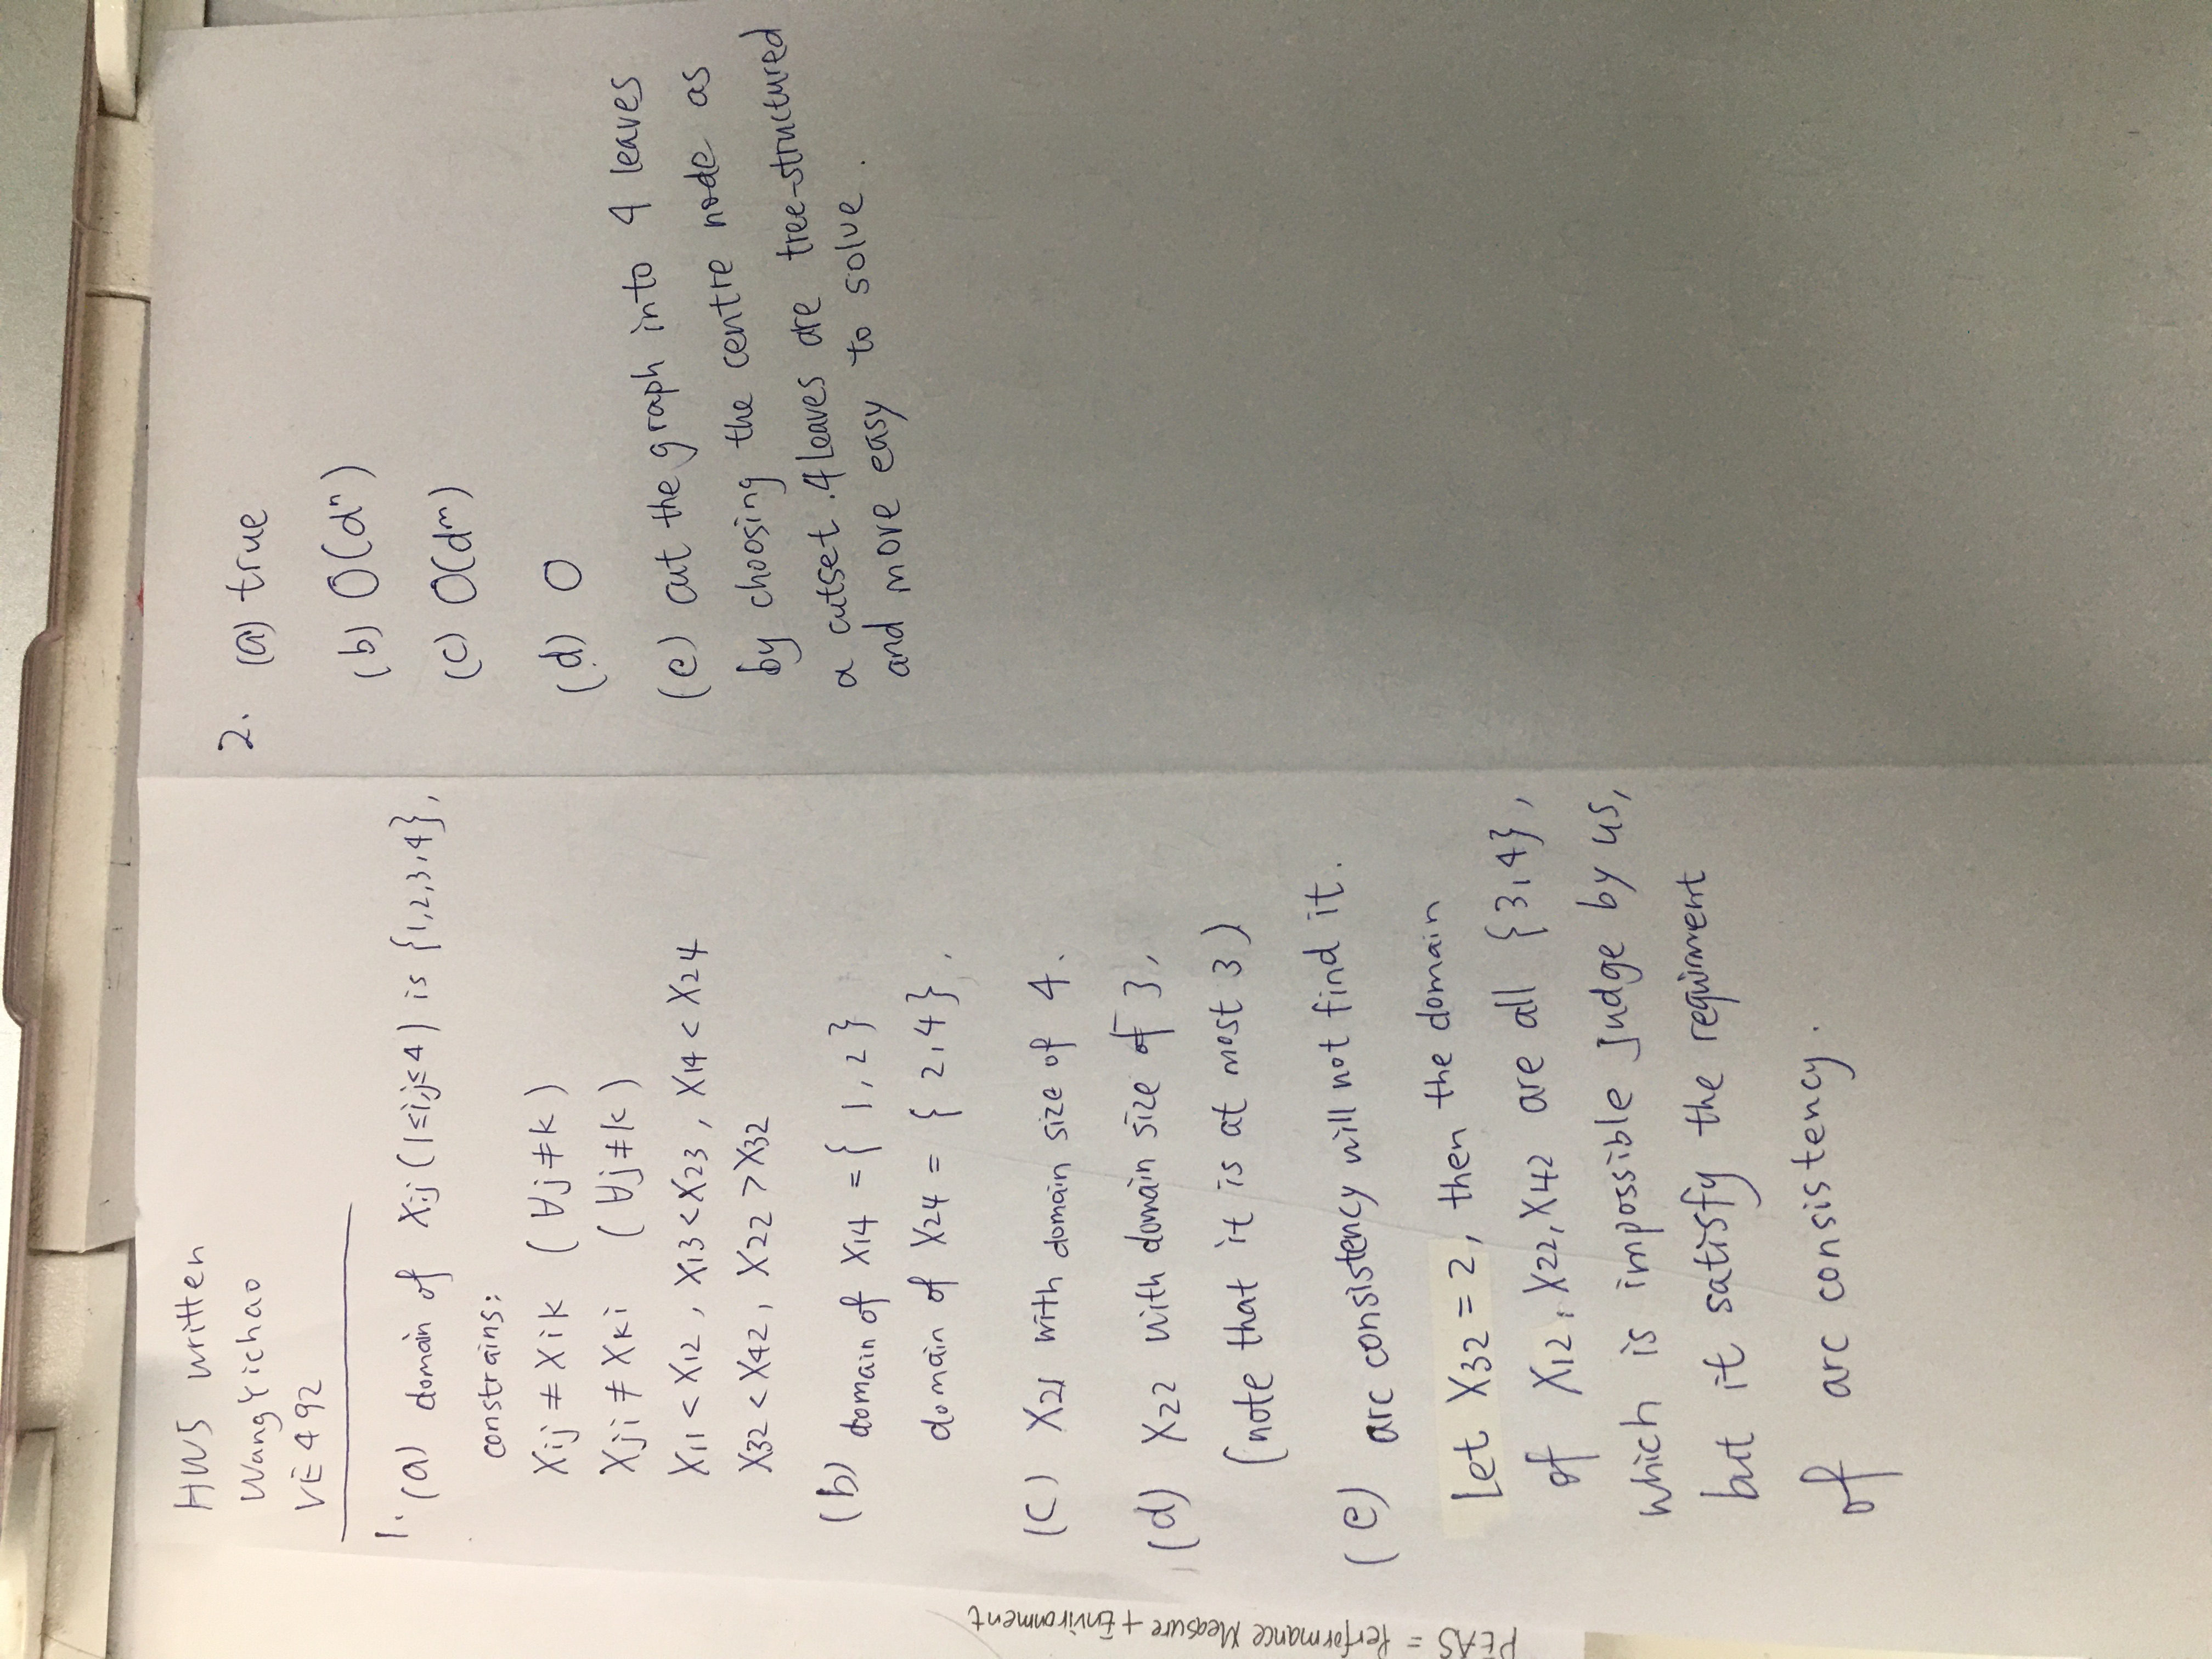 HW5 written
Wang Yichao
VE492
1. (a) domain of Xij (1≤i,j≤4) is {1,2,3,4},
constrains:
Xij ≠ Xik (∀j≠k)
Xji ≠ Xki (∀j≠k)
X11 < X12, X13 < X23, X14 < X24
X32 < X42, X22 > X32
(b) domain of X14 = { 1, 2 }
domain of X24 = { 2, 4 }.
(C) X21 with domain size of 4.
(d) X22 with domain size of 3,
(note that it is at most 3)
(e) arc consistency will not find it.
Let X32 = 2, then the domain
of X12, X22, X42 are all {3,4},
which is impossible judge by us,
but it satisfy the requirment
of arc consistency.
2. (a) true
(b) O(dⁿ)
(c) O(dᵐ)
(d) 0
(e) cut the graph into 4 leaves
by choosing the centre node as
a cutset. 4 leaves are tree-structured
and more easy to solve.
PEAS = Performance Measure + Environment